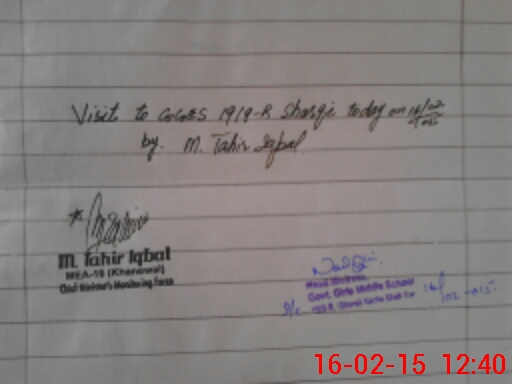 Visit to GGES 19/9-R Sharqi today on 16/02
/015
by. M. Tahir Iqbal
M. Tahir Iqbal
MEA-16 (Khanewal)
Chief Minister's Monitoring Force
Head Mistress,
Govt. Girls Middle School
16/02-015
16-02-15 12:40